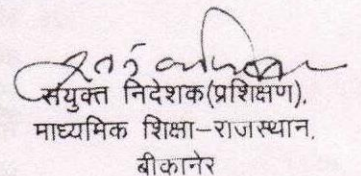 संयुक्त निदेशक(प्रशिक्षण),
माध्यमिक शिक्षा-राजस्थान,
बीकानेर